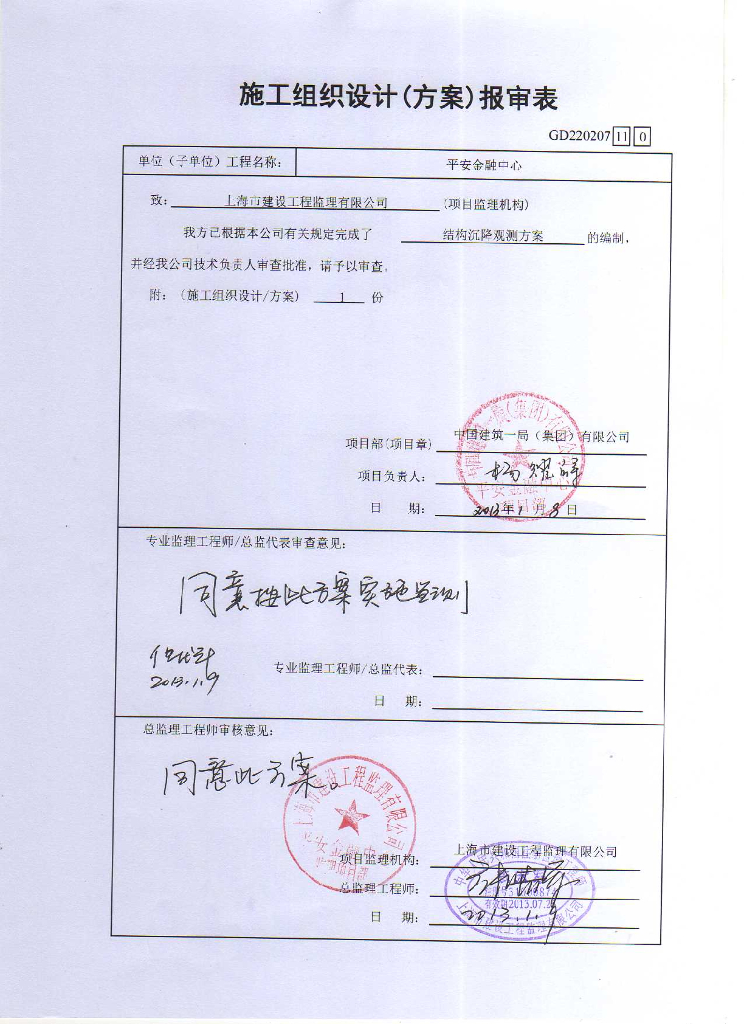 施工组织设计(方案)报审表
GD220207 11 0
单位（子单位）工程名称： 平安金融中心
致： 上海市建设工程监理有限公司 （项目监理机构）
我方已根据本公司有关规定完成了 结构沉降观测方案 的编制，
并经我公司技术负责人审查批准，请予以审查。
附：（施工组织设计/方案） 1 份
项目部(项目章) 中国建筑一局（集团）有限公司
项目负责人：
日 期： 2013年1月8日
专业监理工程师/总监代表审查意见：
同意按此方案实施监测
2013.1.9
专业监理工程师/总监代表：
日 期：
总监理工程师审核意见：
同意此方案。
上海市建设工程监理有限公司
平安金融中
项目监理机构： 上海市建设工程监理有限公司
总监理工程师：
有效期2013.07.2
日 期： 2013.1.9